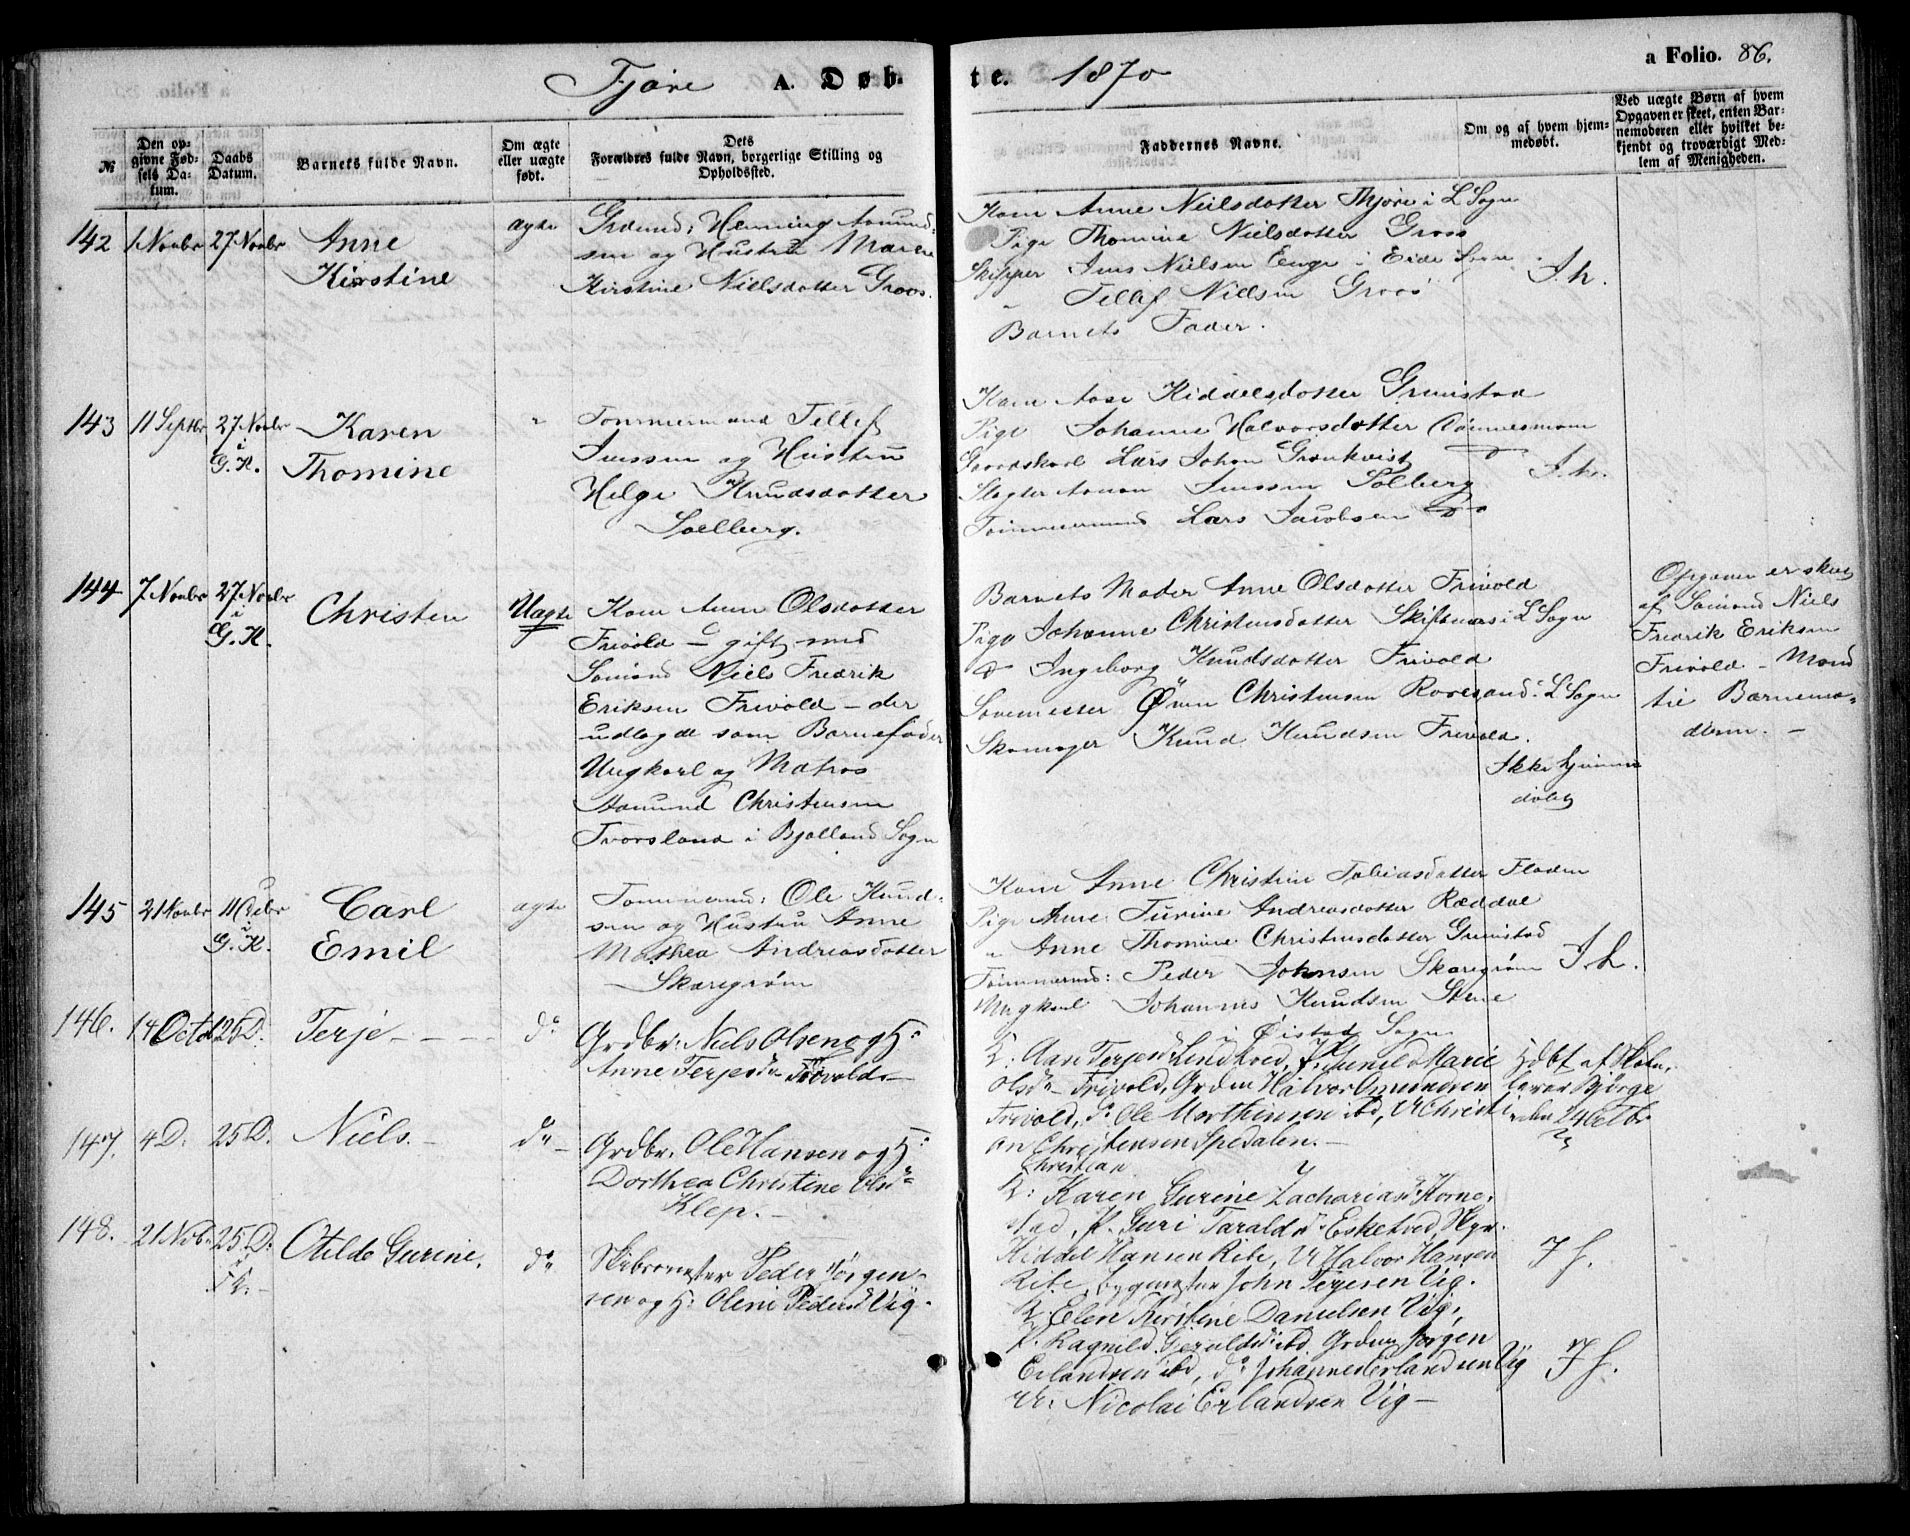 Fjære A. Døb-
te. 1870
a Folio. 86.
№
Den op-
givne Fød-
sels Da-
tum.
Daabs
Datum.
Barnets fulde Navn.
Om ægte
eller uægte
født.
Dets
Forældres fulde Navn, borgerlige Stilling og
Opholdssted.
Faddernes Navne.
Om og af hvem hjem-
medøbt.
Ved uægte Børn af hvem
Opgaven er skeet, enten Bar-
nemoderen eller hvilket be-
kjendt og troværdigt Med-
lem af Menigheden.
142 1 Novbr 27 Novbr Anne
Kirstine
ægte
Grdmd: Henning Aamund-
sen og Hustru Maren
Kirstine Nielsdatter Groos.
Kone Anne Neilsdatter Fhjøre i L Sogn
Pige Thomine Nielsdotter Groos
Skipper Jens Nielsen Eenge i Eide Sogn
" Tellef Nielsen Groos
Barnets Fader.
I. h.
143 11 Septbr 27 Novbr
i
G. K.
Karen
Thomine
"
Tømmermand Tellef
Jenssen og Hustru
Helge Knudsdatter
Solberg.
Kone Aase Kiddelsdotter Grimstad
Pige Johanne Halvorsdotter Rønnesmoen
Gaardskarl Lars Johan Grønkvist do
Slagter Jenssen Solberg
Tømmermand Lars Jacobsen do
I. h.
144 7 Novbr 27 Novbr
i
G. K.
Christen
Uægte
Kone Anne Olsdatter
Frivold - gift med
Sømand Niels Fredrik
Eriksen Frivold - der
udlagde som Barnefader
Ungkarl og Matros
Aamund Christensen
Tvorsland i Bjelland Sogn
Barnets Moder Anne Olsdotter Frivold
Pige Johanne Christensdatter Skiftenes i L Sogn
do Ingeborg Knudsdotter Frivold
Christensen Roresand i L Sogn
Skomager Knud Knudsen Frivold.
Ikke hjemme
døbt
Opgaven er skeet
af Sømand Niels
Fredrik Eriksen
Frivold - Mand
til Barnemo-
deren. -
145 21 Novbr 11 Decbr
i
G. K.
Carl
Emil
ægte
Tømmermd: Ole Knud-
sen og Hustru Anne
Mathea Andreasdatter
Skaregrøm
Kone Anne Christine Tobiasdatter Floden
Pige Anne Turine Andreasdotter Ræddal
" Anne Thomine Christensdatter Grimstad
Tømmermd: Peder Johnsen Skaregrøm
Ungkarl Johannes Knudsen Stene
i Øistad Sogn
I. h.
146. 14 Octb 25 D. Terje - - - - do
Grdbr: Niels Olsen og H:
Anne Terjesdr Frivold
K: Aase Terjesdr Lindkved, P. Gunild Marie
Olsdr Frivold, Grdm Halvor Omundsen
Frivold, do Ole Morthensen ibd, U Christi-
an Christensen Spedalen. -
Christian
Hdbt af Skole-
lærer Bjorge
den 24 Octbr
147. 4 D. 25 D. Niels. - do -
Grdbr. Ole Hansen og H:
Dorthea Christine Olsdr
Klep. -
K: Karen Gurine Zachariasdr Horne-
stad, P. Guri Taraldsdr Eskeved,
Kiddel Hansen Ribe, U Halvor Hansen
Ribe, bygmester John Terjesen Vig.
H h.
148. 21 Nobr 25 D:
i
F. K. -
Otilde Gurine. do
Skibsromester Peder Jørgen-
sen og H: Oline Pedersd Vig. -
K: Elen Kirstine Danielsen Vig,
P. Ragnild Geruldsdr ibd. Grdm Jørgen
Erlandsen ibd, do Johannes Erlandsen Vig
U: Nicolai Erlandsen Vig -
H h.